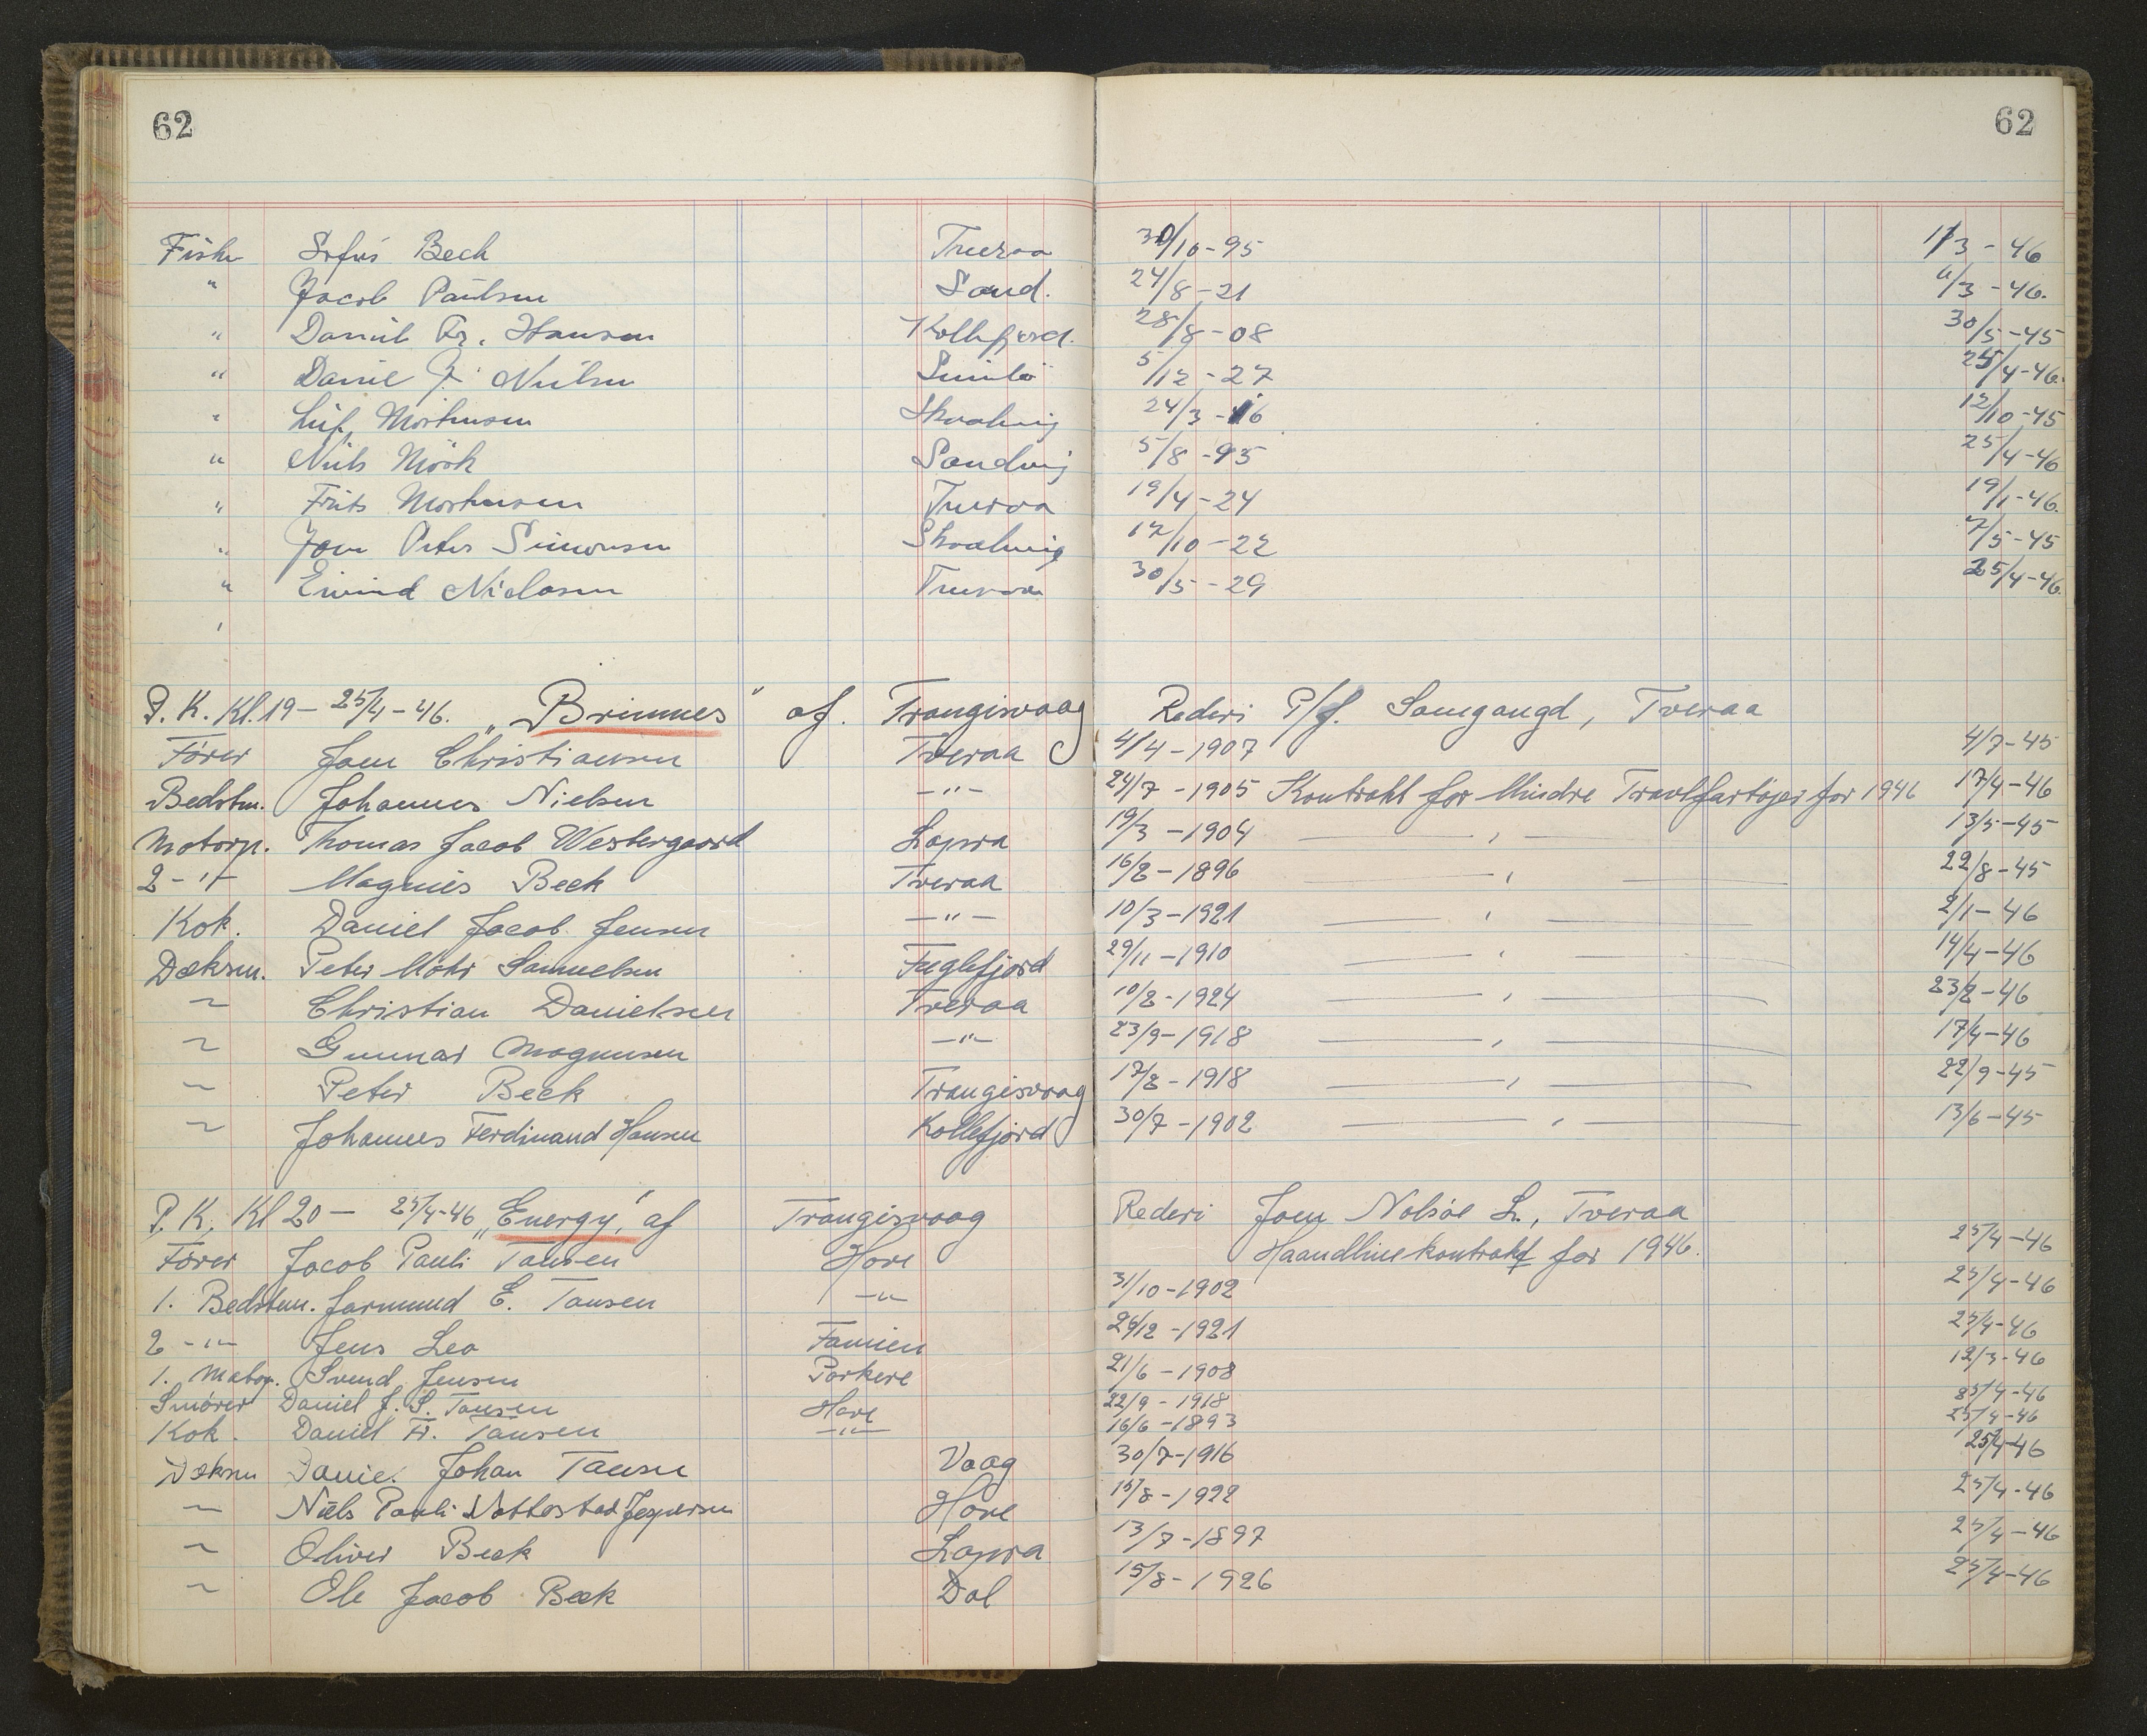 62 62
Fisker Sofus Bech Tveraa 30/10-95 1/3-46
" Jacob Paulsen Sand. 24/8-21 11/3-46.
" Daniel Fr. Hansen Kollefjord. 28/8-08 30/5-45
" Daniel J. Nielsen Sumbö 5/12-27 25/4-46.
" Leif Mortensen Skaalevig 24/3-16 12/10-45
" Niels Mörk Sandvig 5/8-95 25/4-46
" Frits Mortensen Tveraa 19/4-24 19/1-46.
" Joen Peter Simonsen Skaalevig 17/10-22 7/5-45
" Eivind Niclasen Tveraa 30/5-29 25/4-46.
P. K. Kl. 19- 25/4-46. „Brimnes" af. Trangisvaag Rederi P/f. Samgangd, Tveraa
Förer Joen Christiansen Tveraa 4/4-1907 4/7-45
Bedstm. Johannes Nielsen -"- 24/7-1905 Kontrakt for Mindre Travlfartøjer for 1946 17/4-46
Motorp. Thomas Jacob Westergaard Lopra 19/3-1904 — " — 13/5-45
2-"- Magnus Beck Tveraa 16/2-1896 — " — 22/8-45
Kok. Daniel Jacob Jensen -"- 10/3-1921 — " — 2/1-46
Dæksm. Peter Mohr Samuelsen Fuglefjord 29/11-1910 — " — 14/4-46
~ Christian Danielsen Tveraa 10/2-1924 — " — 23/2-46
~ Gunnar Magnusen -"- 23/9-1918 — " — 17/4-46
~ Peter Beck Trangisvaag 17/2-1918 — " — 22/9-45
~ Johannes Ferdinand Hansen Kollefjord 30/7-1902 — " — 13/6-45
P. K. Kl 20- 25/4-46 „Energy," af Trangisvaag Rederi Joen Nolsøe L., Tveraa
Förer Jacob Pauli Tausen Hove Haandlinekontrakt for 1946. 25/4-46
1. Bedstm. Jarmund E. Tausen -"- 31/10-1902 25/4-46
2 -"- Jens Leo Famien 26/12-1921 25/4-46
1. Motop. Svend Jensen Porkere 21/6-1908 12/3-46
Smörer Daniel J. S. Tausen Hove 22/9-1918 25/4-46
Kok. Daniel Fr. Tausen -"- 16/6-1893 25/4-46
Dæksm Daniel Johan Tausen Vaag 30/7-1916 25/4-46
~ Niels Pauli Nattestad Jespersen Hove 15/8-1922 25/4-46
~ Oliver Beck Lopra 13/7-1897 25/4-46
~ Ole Jacob Beck Dal 15/8-1926 25/4-46